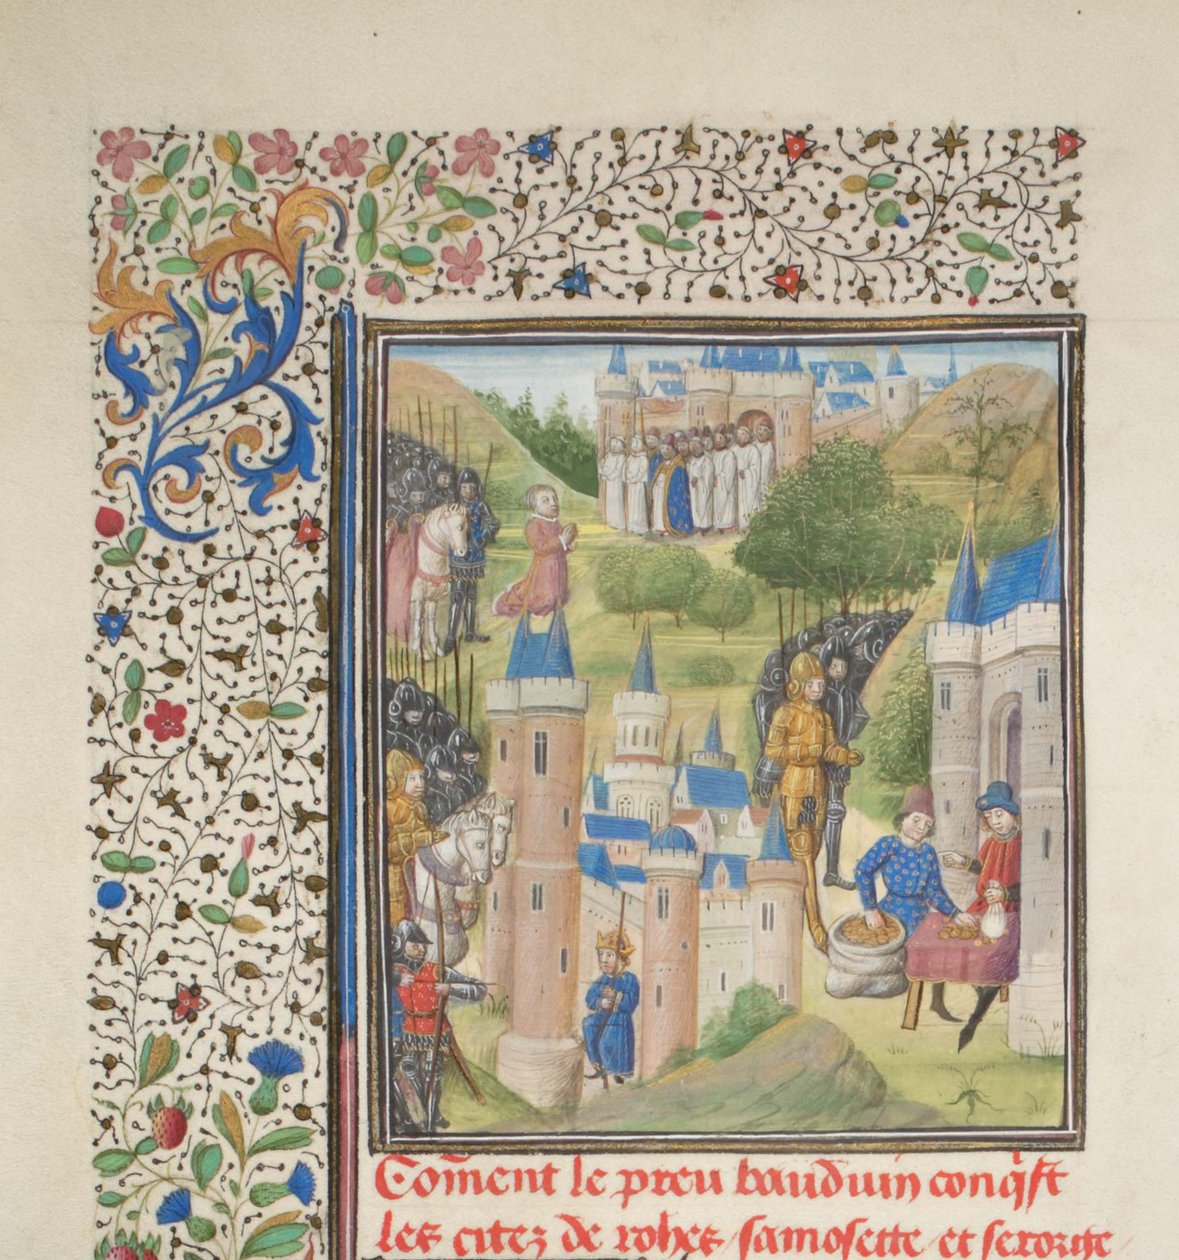 Co͞ment le preu bauduin conq̍st
les citez de rohes samosette et serorge